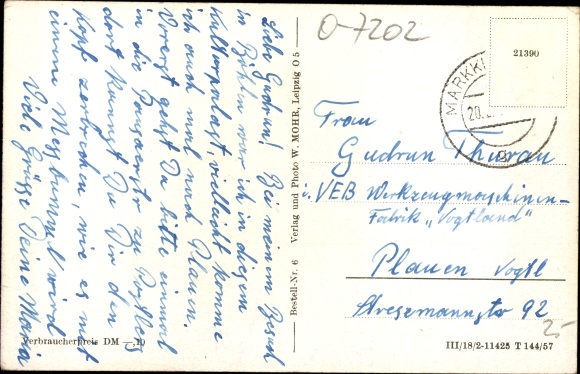 Liebe Gudrun! Bei meinem Besuch
in Böhlen war ich in diesem
Kulturpalast, vielleicht komme
ich auch mal nach Plauen.
Vorerst gehst Du bitte einmal
in die Pausaerstr. zu
dort kannst Du Dir den
Kopf zerbrechen, wie es mit
einem Messbummel wird
Viele Grüsse Deine Maria
Verbraucherpreis DM —,10
Bestell-Nr. 6 Verlag und Photo W. MOHR, Leipzig O 5
O-7202
21390
MARKKL
20.
Frau
Gudrun Thurau
VEB Werkzeugmaschinen-
Fabrik „Vogtland"
Plauen Vogtl
Stresemannstr 92
2,-
III/18/2-11425 T 144/57